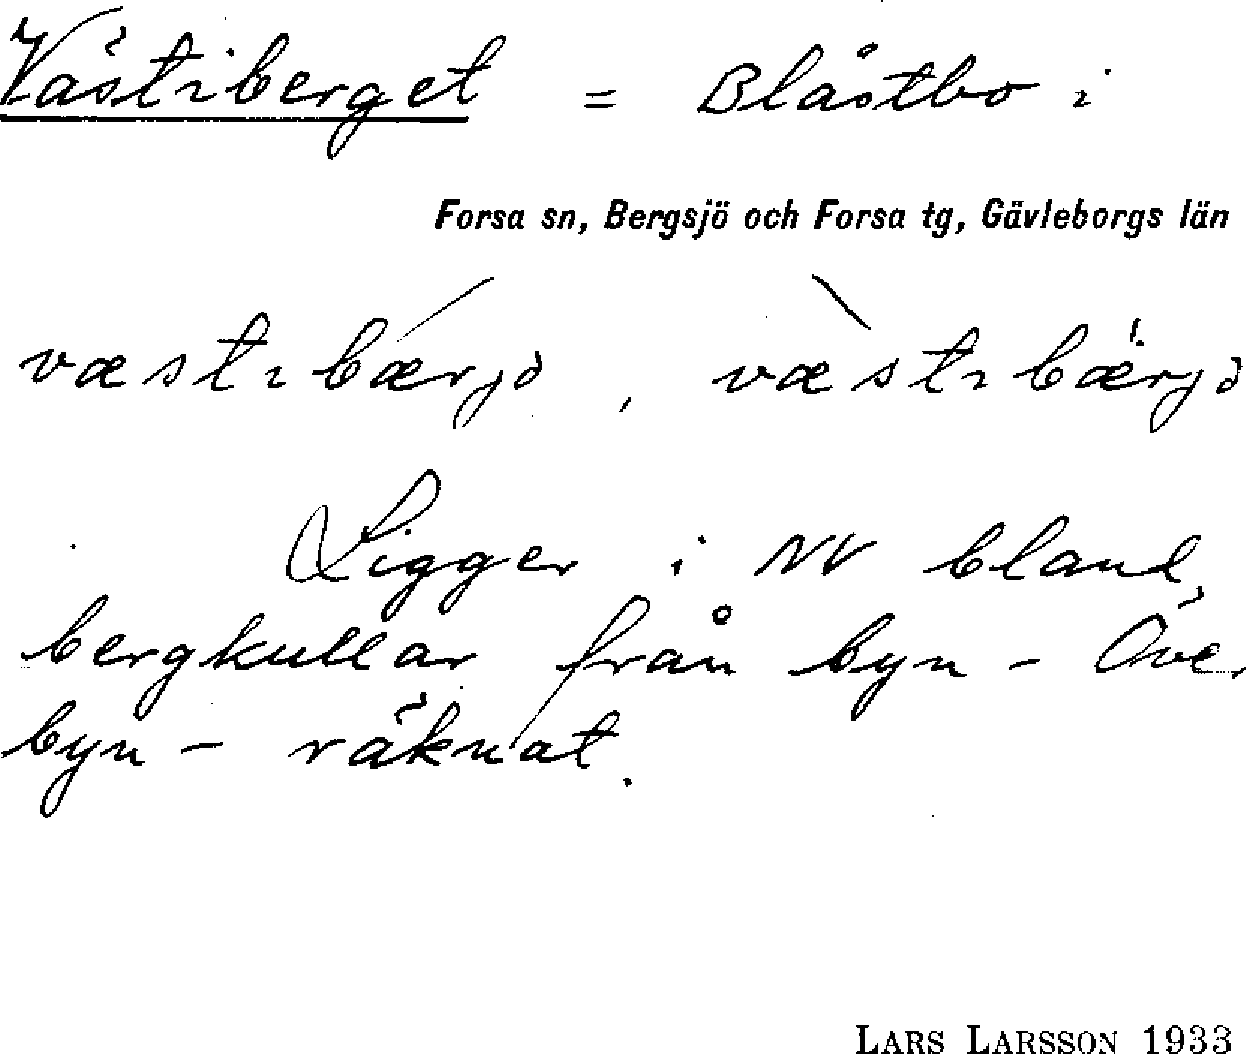 Västiberget = Blåstbo i
Forsa sn, Bergsjö och Forsa tg, Gävleborgs län
væstıbærjə, væstıbærjə
Ligger i NV bland
bergkullar från byn - Över
byn - räknat.
LARS LARSSON 1933